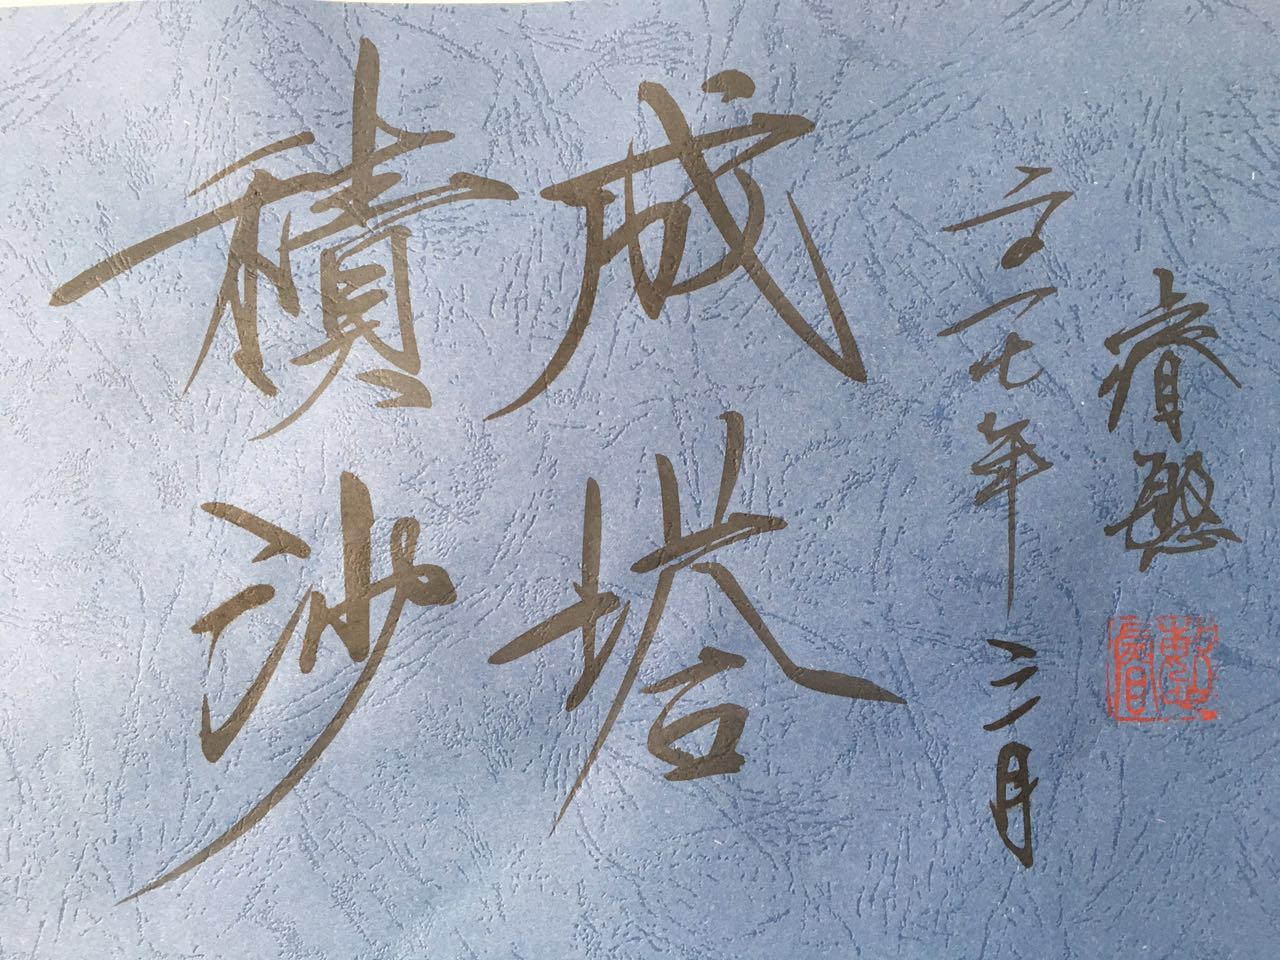 積沙
成塔
二〇一七年二月
睿愍